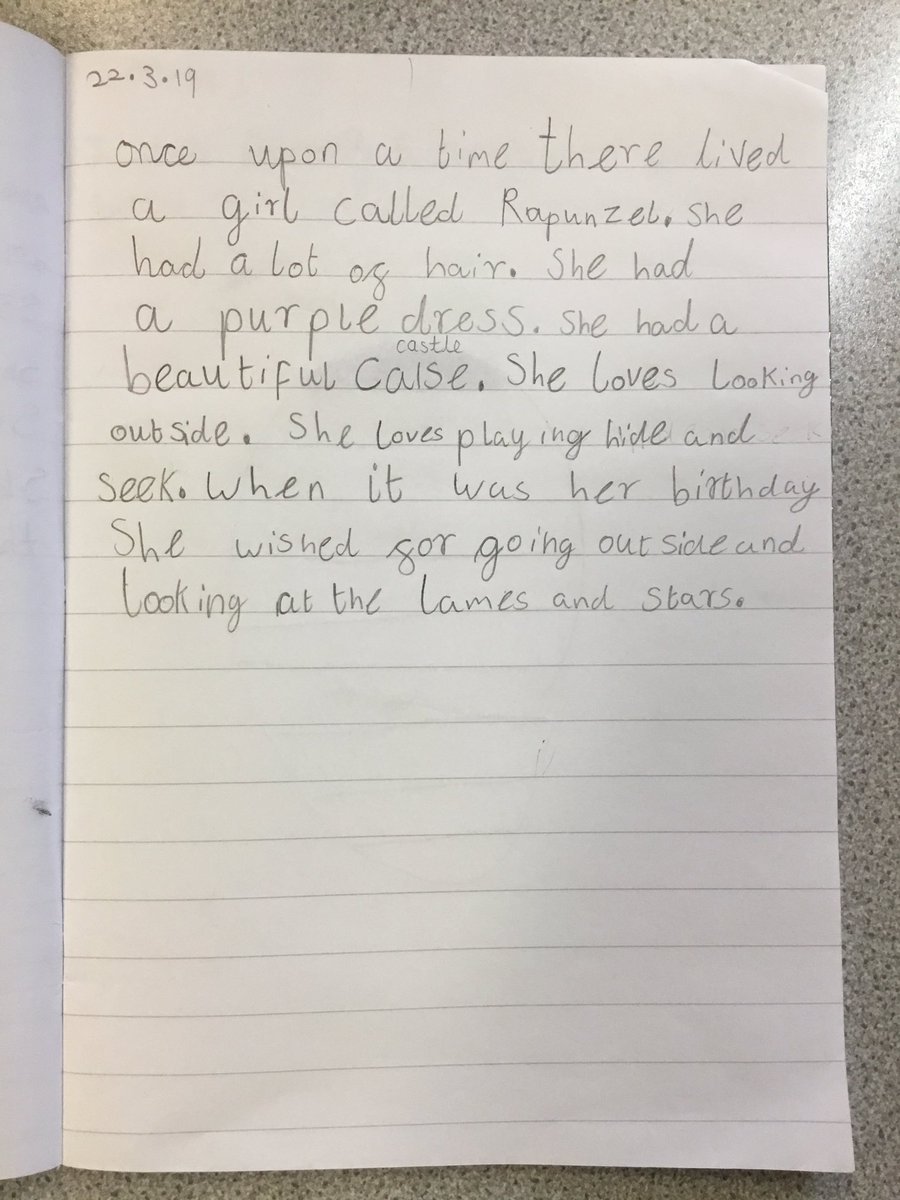 22.3.19
once upon a time there lived
a girl called Rapunzel. She
had a lot of hair. She had
a purple dress. She had a
castle
beautiful Calse. She loves looking
outside. She loves playing hide and
seek. When it was her birthday
She wished for going outside and
looking at the lames and stars.